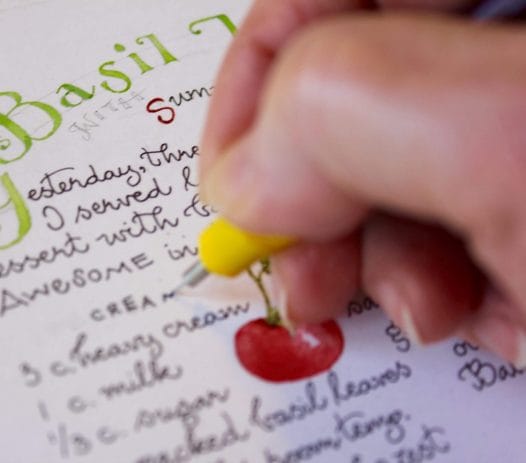 Basil
WITH
Sum
Yesterday, thre
I served
essert with
AWESOME in
CREAM
3 c. heavy cream
1 c. milk
1/3 c. sugar
packed basil leaves
room temp.